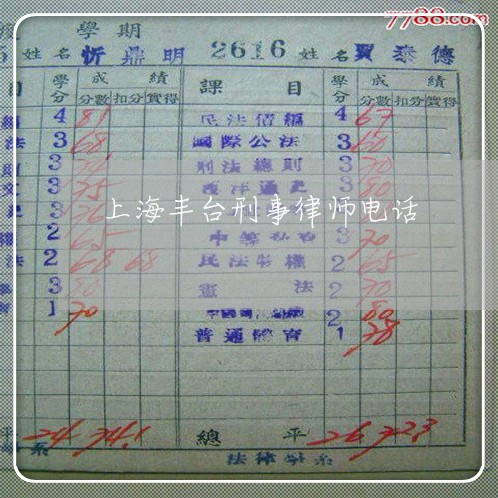 7788.com
學期
姓名 忻鼎明 2616 姓名 賈泰德
目 學分 成績 課目 學分 成績
分數 扣分 實得 分數 扣分 實得
4 81 民法債編 4 67
法 3 68 國際公法 3 60
3 刑法總則 3 70
3 75 西洋通史 3 80
3 76
上海丰台刑事律师电话
2 65 3 70
法 2 68 68 民法物權 2 65
3 80 憲法 2 70
1 70 2 80
普通體育 1 78
平 24 74.1 總平 26 72.3
系 法律學系